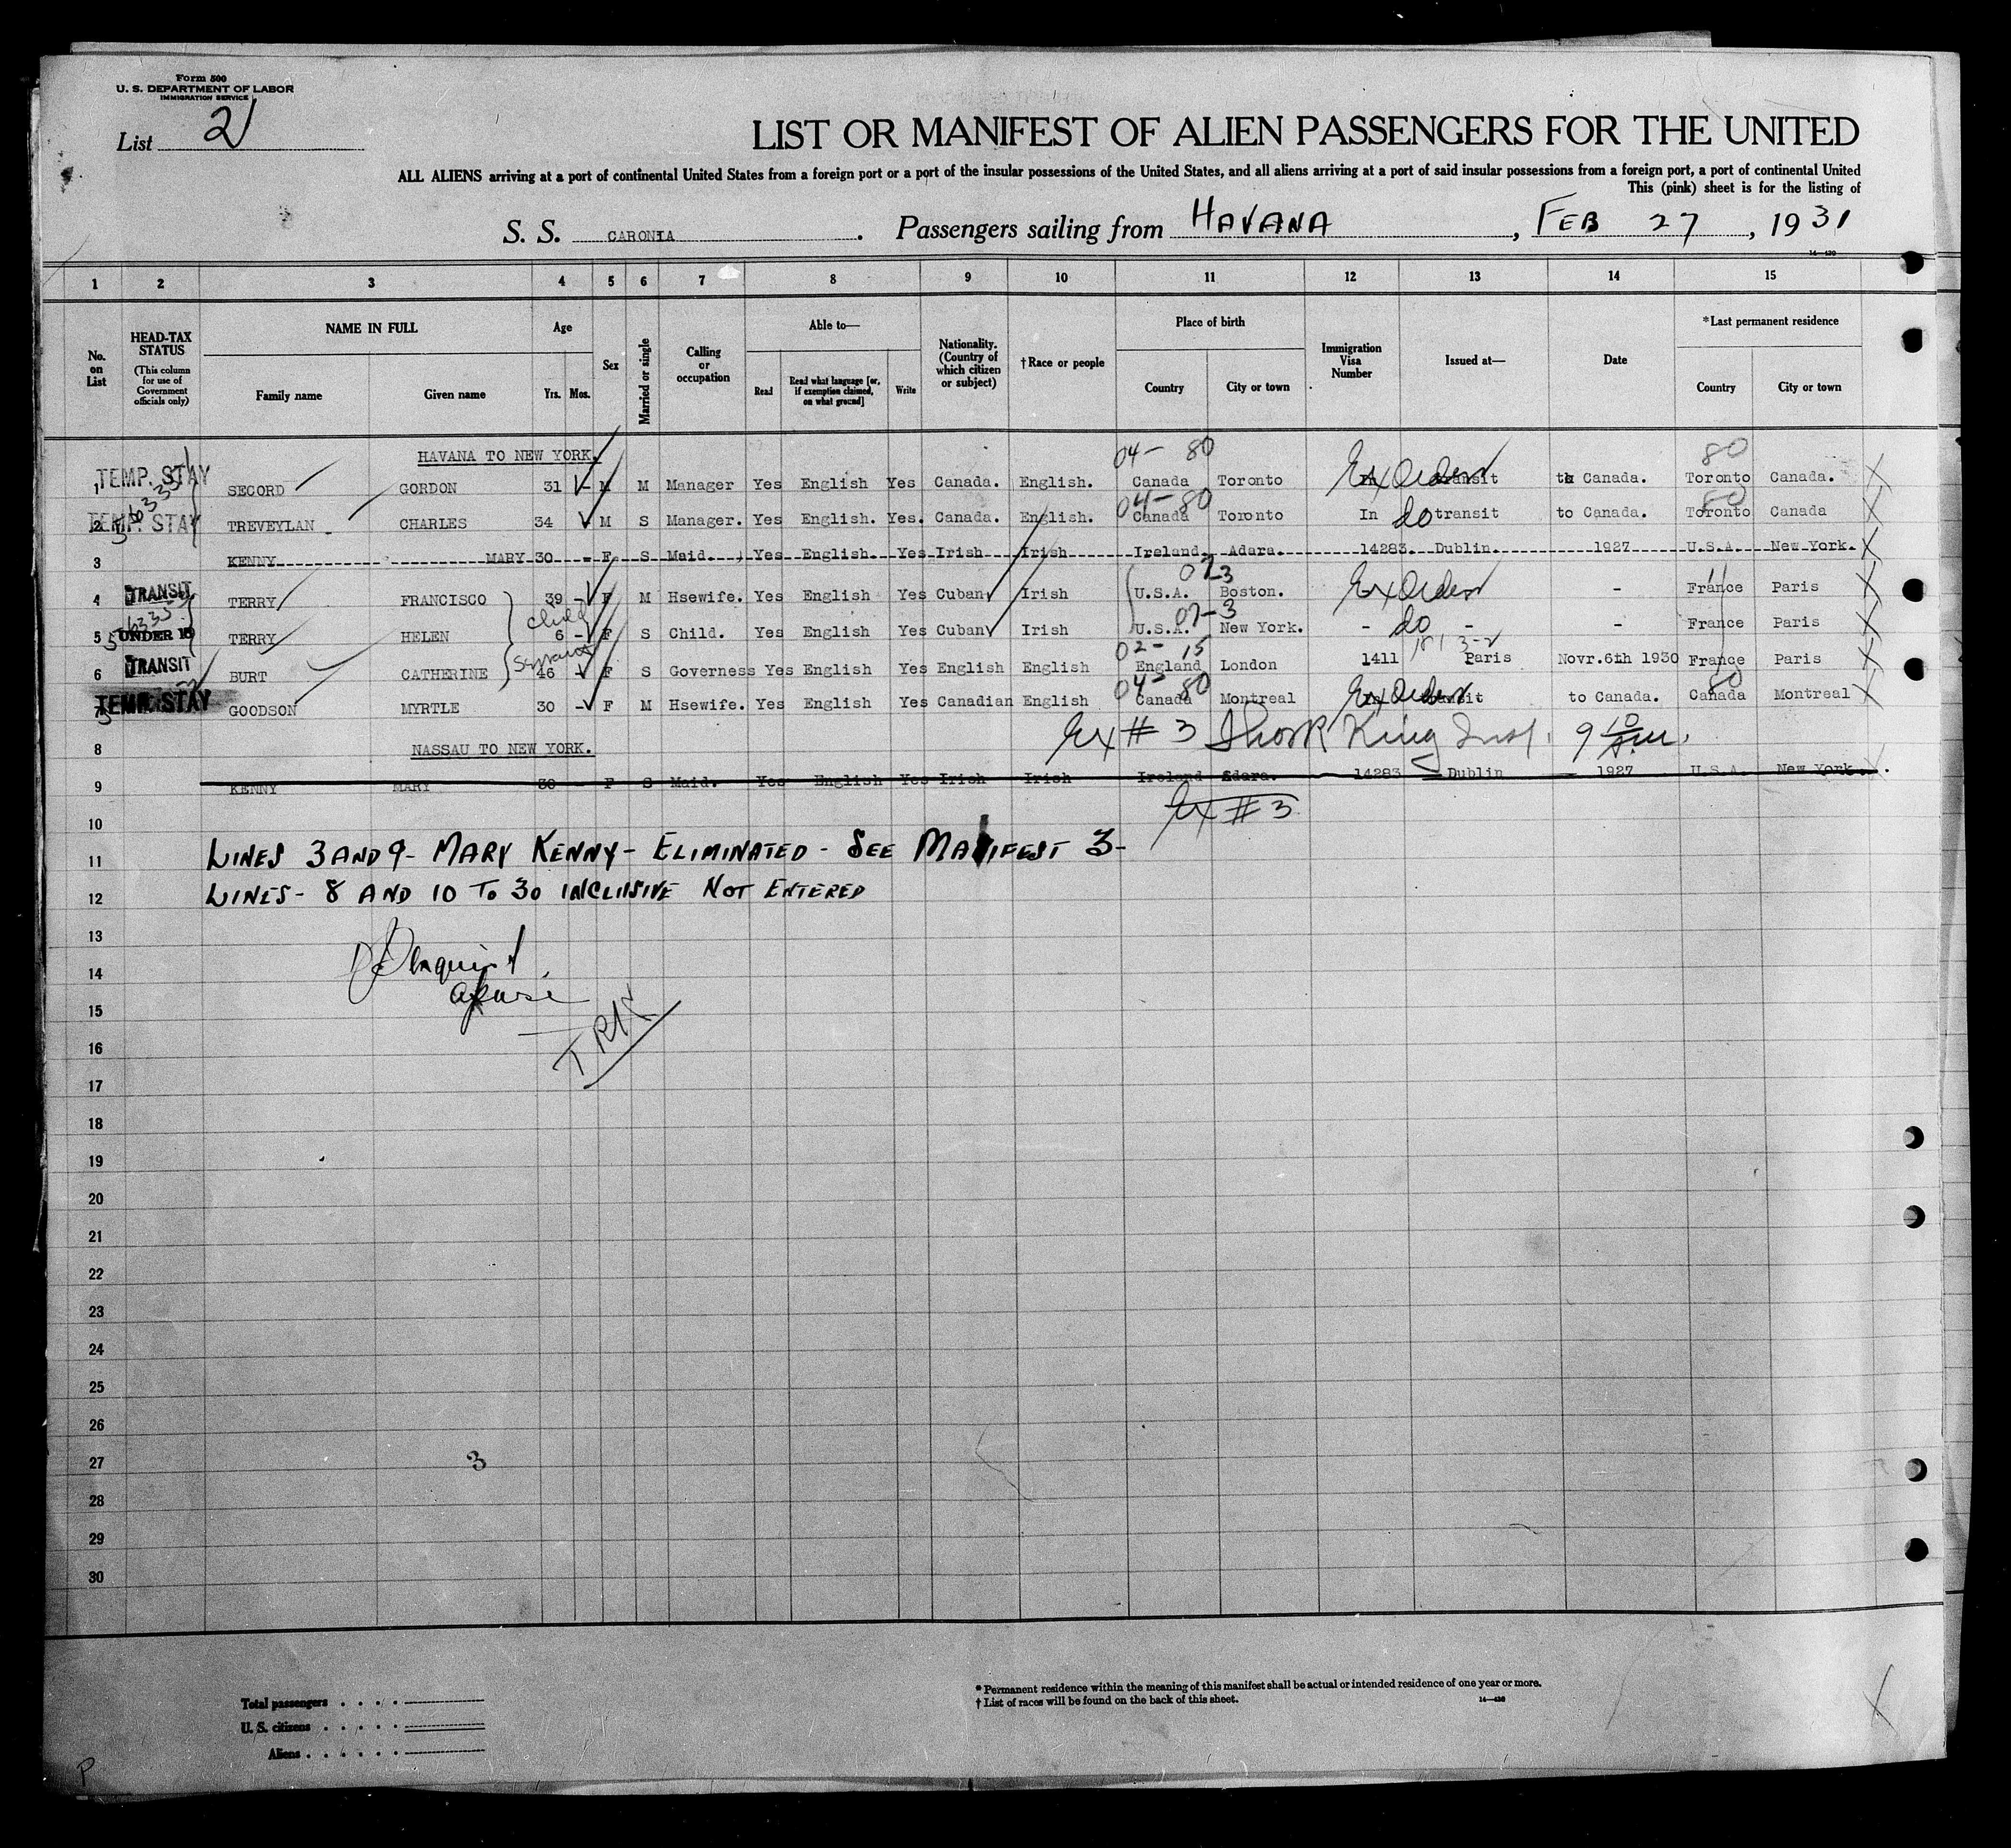 Form 500
U. S. DEPARTMENT OF LABOR
IMMIGRATION SERVICE
List 2
LIST OR MANIFEST OF ALIEN PASSENGERS FOR THE UNITED
ALL ALIENS arriving at a port of continental United States from a foreign port or a port of the insular possessions of the United States, and all aliens arriving at a port of said insular possessions from a foreign port, a port of continental United
This (pink) sheet is for the listing of
S. S. CARONIA. Passengers sailing from HAVANA, FEB 27, 1931
14-430
1 2 3 4 5 6 7 8 9 10 11 12 13 14 15
No. on List HEAD-TAX STATUS (This column for use of Government officials only) NAME IN FULL Family name Given name Age Yrs. Mos. Sex Married or single Calling or occupation Able to— Read Read what language [or, if exemption claimed, on what ground] Write Nationality. (Country of which citizen or subject) †Race or people Place of birth Country City or town Immigration Visa Number Issued at— Date *Last permanent residence Country City or town
HAVANA TO NEW YORK. 04- 80 80
1 TEMP. STAY SECORD GORDON 31 - M M Manager Yes English Yes Canada. English. Canada Toronto Ex Order transit to Canada. Toronto Canada.
04-80 80
2 TEMP. STAY TREVEYLAN CHARLES 34 M S Manager. Yes English. Yes. Canada. English. Canada Toronto In do transit to Canada. Toronto Canada
3 KENNY MARY 30 - F S Maid. Yes English Yes Irish Irish Ireland. Adara. 14283 Dublin. 1927 U.S.A. New York.
073 11
4 TRANSIT TERRY FRANCISCO 39 - F M Hsewife. Yes English Yes Cuban Irish U.S.A. Boston. Ex Order - France Paris
child 07-3
5 UNDER 16 TERRY HELEN 6 - F S Child. Yes English Yes Cuban Irish U.S.A. New York. - do - - France Paris
02-15
6 TRANSIT BURT CATHERINE 46 - F S Governess Yes English Yes English English England London 1411 Paris Novr.6th 1930 France Paris
04- 80 80
7 TEMP. STAY GOODSON MYRTLE 30 - F M Hsewife. Yes English Yes Canadian English Canada Montreal Ex Order transit to Canada. Canada Montreal
Ex # 3 King Insp. 9 10 A.M.
8 NASSAU TO NEW YORK.
9 KENNY MARY 30 F S Maid. Yes English Yes Irish Irish Ireland Adara. 14283 Dublin 1927 U.S.A. New York.
Ex # 3
10
11 LINES 3 AND 9- MARY KENNY- ELIMINATED - SEE MANIFEST 3-
12 LINES- 8 AND 10 TO 30 INCLUSIVE NOT ENTERED
13
14
15
16
17
18
19
20
21
22
23
24
25
26
27
3
28
29
30
Total passengers
U. S. citizens
Aliens
* Permanent residence within the meaning of this manifest shall be actual or intended residence of one year or more.
† List of races will be found on the back of this sheet. 14-430
P